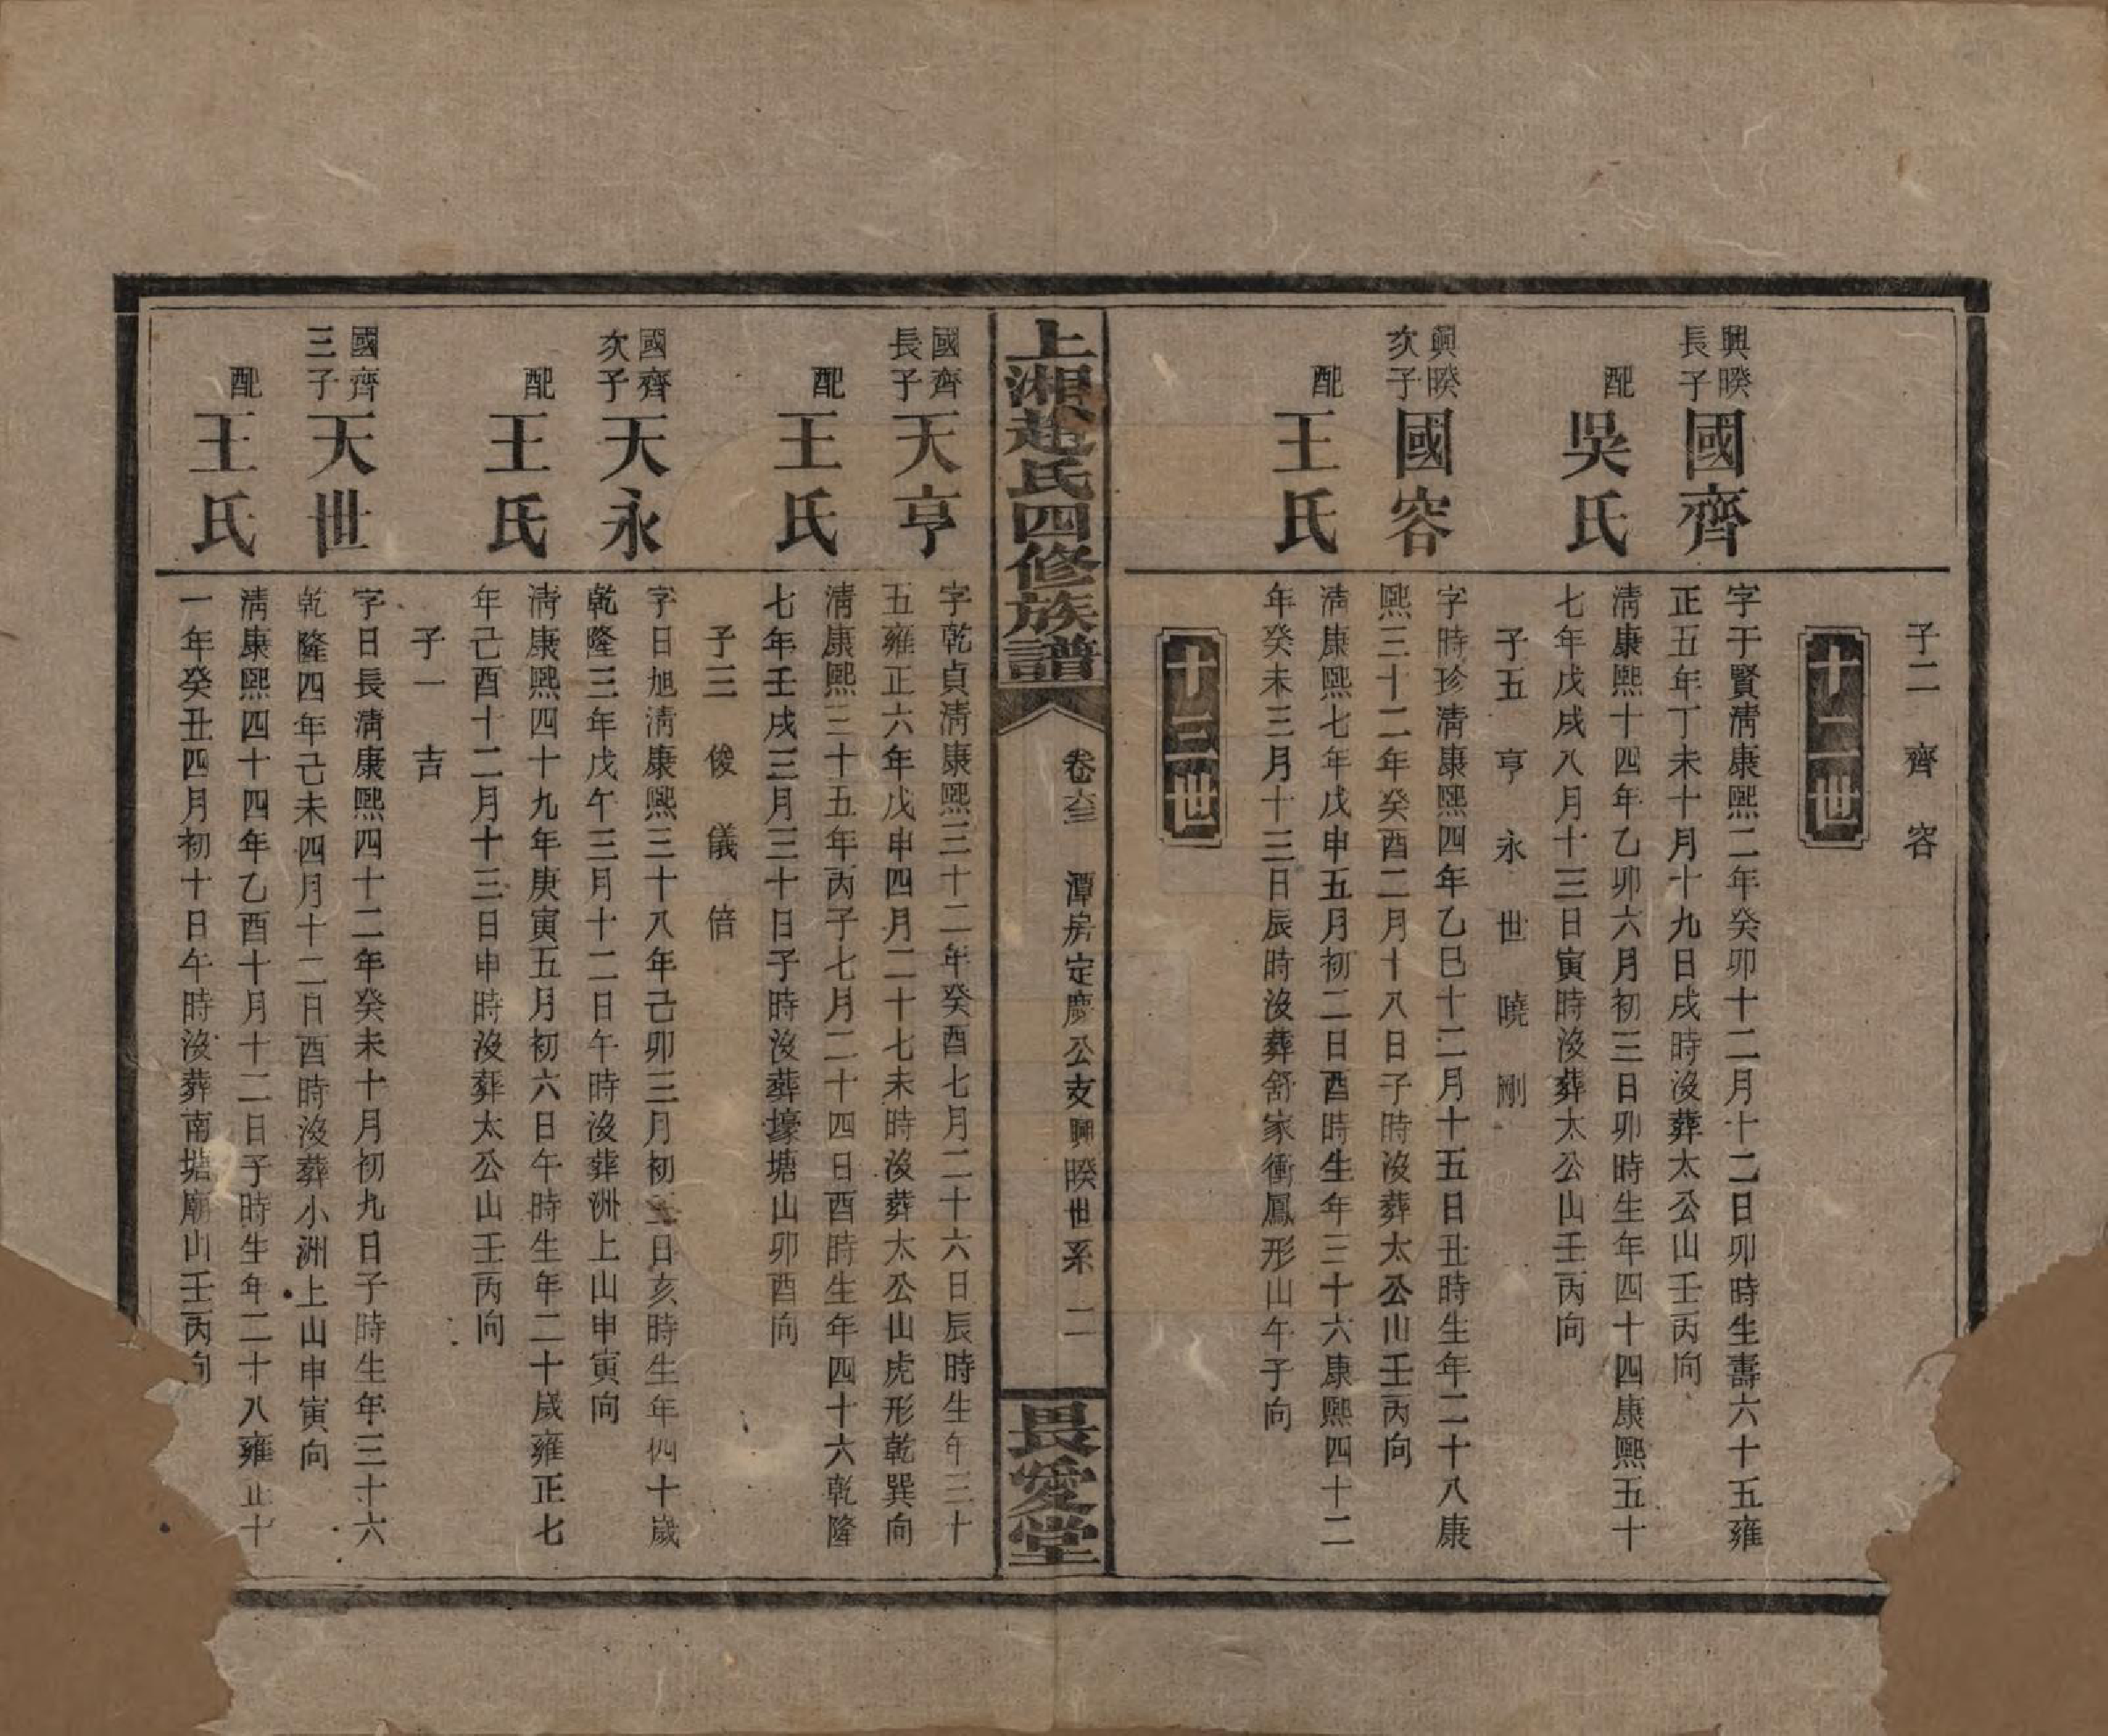 子二 齊 容
十二世
興暌長子 國齊
字于賢淸康熙二年癸卯十二月十二日卯時生壽六十五雍
正五年丁未十月十九日戌時沒葬太公山壬丙向
配吳氏
淸康熙十四年乙卯六月初三日卯時生年四十四康熙五十
七年戊戌八月十三日寅時沒葬太公山壬丙向
子五 亨 永 世 曉 剛
興暌次子 國容
字時珍淸康熙四年乙巳十二月十五日丑時生年二十八康
熙三十二年癸酉二月十八日子時沒葬太公山壬丙向
配王氏
淸康熙七年戊申五月初二日酉時生年三十六康熙四十二
年癸未三月十三日辰時沒葬舒家衝鳳形山午子向
十三世
上湘趙氏四修族譜
卷六三 潭房定慶公支興暌世系 二
畏愛堂
國齊長子 天亨
字乾貞淸康熙三十二年癸酉七月二十六日辰時生年三十
五雍正六年戊申四月二十七未時沒葬太公山虎形乾巽向
配王氏
淸康熙三十五年丙子七月二十四日酉時生年四十六乾隆
七年壬戌三月三十日子時沒葬壕塘山卯酉向
子三 俊 儀 倍
國齊次子 天永
字日旭淸康熙三十八年己卯三月初三日亥時生年四十歲
乾隆三年戊午三月十二日午時沒葬洲上山申寅向
配王氏
淸康熙四十九年庚寅五月初六日午時生年二十歲雍正七
年己酉十二月十三日申時沒葬太公山壬丙向
子一 吉
國齊三子 天世
字日長淸康熙四十二年癸未十月初九日子時生年三十六
乾隆四年己未四月十二日酉時沒葬小洲上山申寅向
配王氏
淸康熙四十四年乙酉十月十二日子時生年二十八雍正十
一年癸丑四月初十日午時沒葬南塘廟山壬丙向